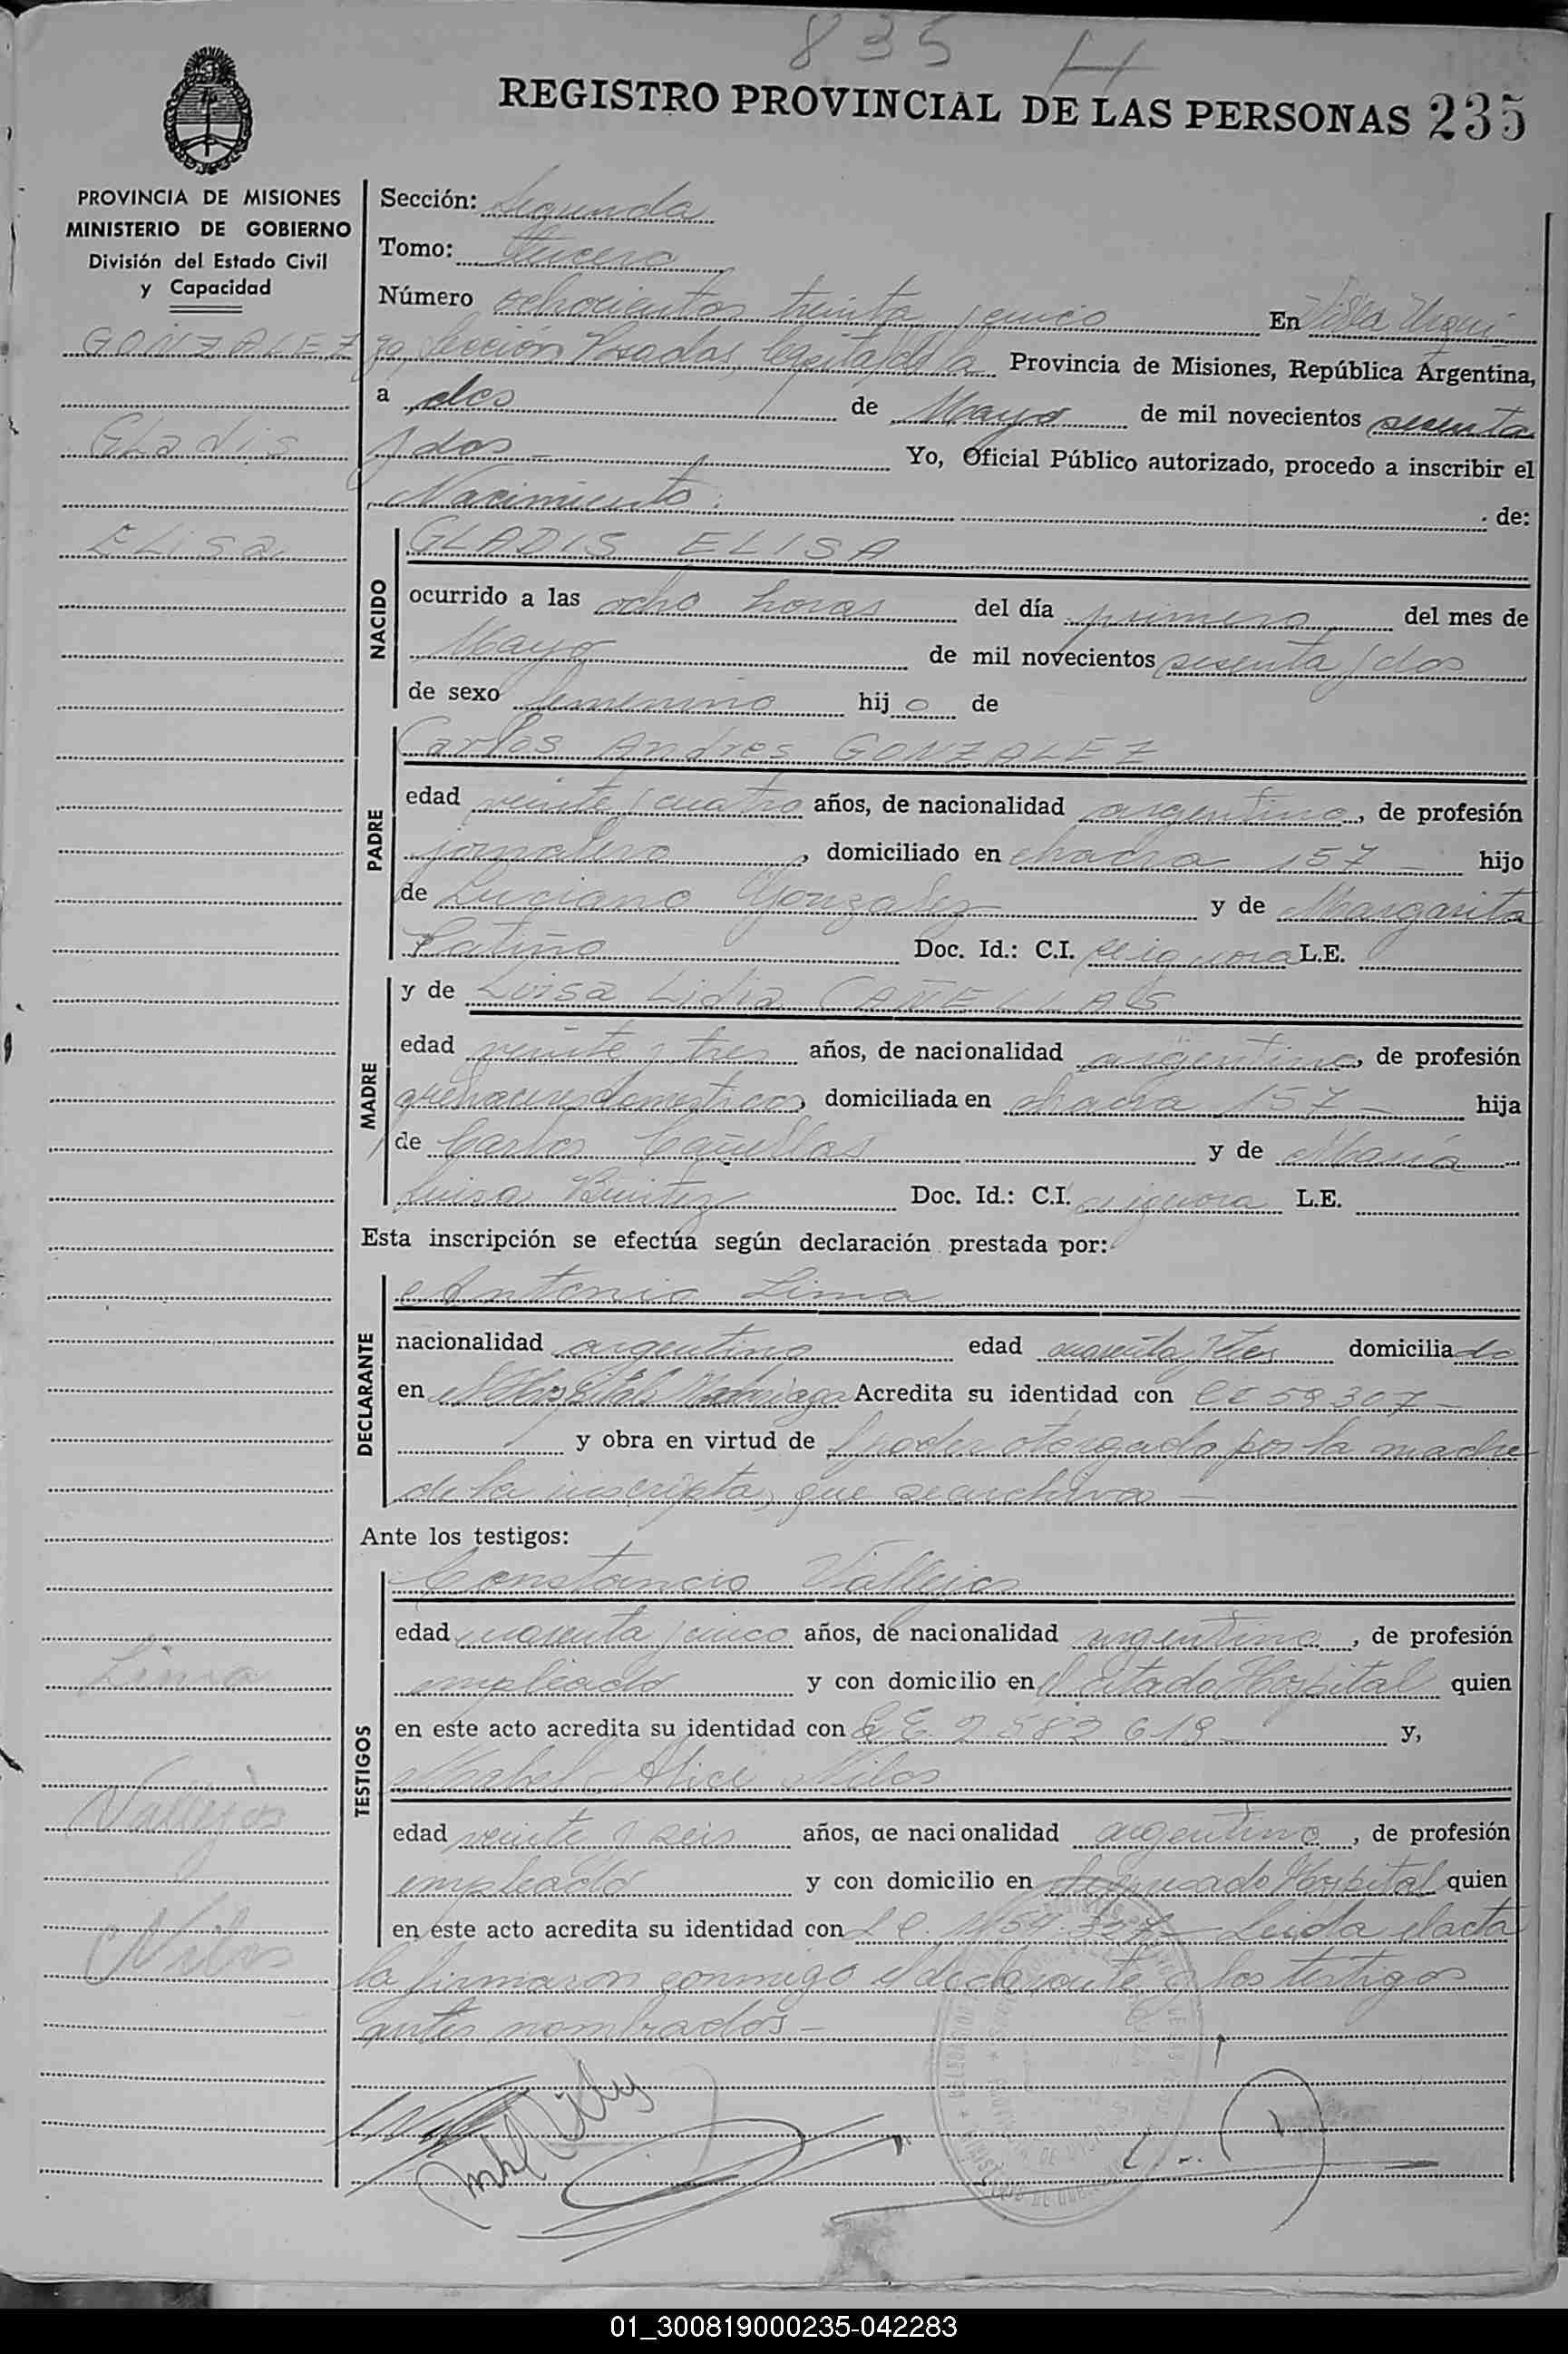 835 H
REGISTRO PROVINCIAL DE LAS PERSONAS 235
PROVINCIA DE MISIONES
MINISTERIO DE GOBIERNO
División del Estado Civil
y Capacidad
GONZALEZ
Gladis
Elisa
Sección: Segunda
Tomo: Tercero
Número ochocientos treinta y cinco En Villa Urqui
za, Sección Posadas, Capital de la Provincia de Misiones, República Argentina,
a dos de Mayo de mil novecientos sesenta
y dos - Yo, Oficial Público autorizado, procedo a inscribir el
Nacimiento. de:
NACIDO
GLADIS ELISA
ocurrido a las ocho horas del día primero del mes de
Mayo de mil novecientos sesenta y dos
de sexo femenino hij o de
PADRE
Carlos Andres GONZALEZ
edad veinte y cuatro años, de nacionalidad argentino, de profesión
jornalero, domiciliado en chacra 157 - hijo
de Luciano Gonzalez y de Margarita
Patiño Doc. Id.: C.I. se ignora L.E.
MADRE
y de Luisa Lidia CAÑELLAS
edad veinte y tres años, de nacionalidad argentina, de profesión
quehaceres domesticos, domiciliada en chacra 157 - hija
de Carlos Cañellas y de María
Luisa Benitez Doc. Id.: C.I. se ignora L.E.
Esta inscripción se efectúa según declaración prestada por:
DECLARANTE
Antonio Lima
nacionalidad argentino edad cuarenta y tres domiciliado
en el Hospital Madariaga Acredita su identidad con CI 59.307 -
y obra en virtud de poder otorgado por la madre
de la inscripta, que se archiva -
Ante los testigos:
TESTIGOS
Constancio Vallejos
edad cuarenta y cinco años, de nacionalidad argentino, de profesión
empleado y con domicilio en el citado Hospital quien
en este acto acredita su identidad con L.E. 2.582.619 - y,
Mabel Alice Nilos
edad veinte y seis años, de nacionalidad argentina, de profesión
empleado y con domicilio en el expresado Hospital quien
en este acto acredita su identidad con Leida el acta
la firmaron conmigo el declarante y los testigos
antes nombrados -
Lima
Vallejos
Nilos
01_300819000235-042283